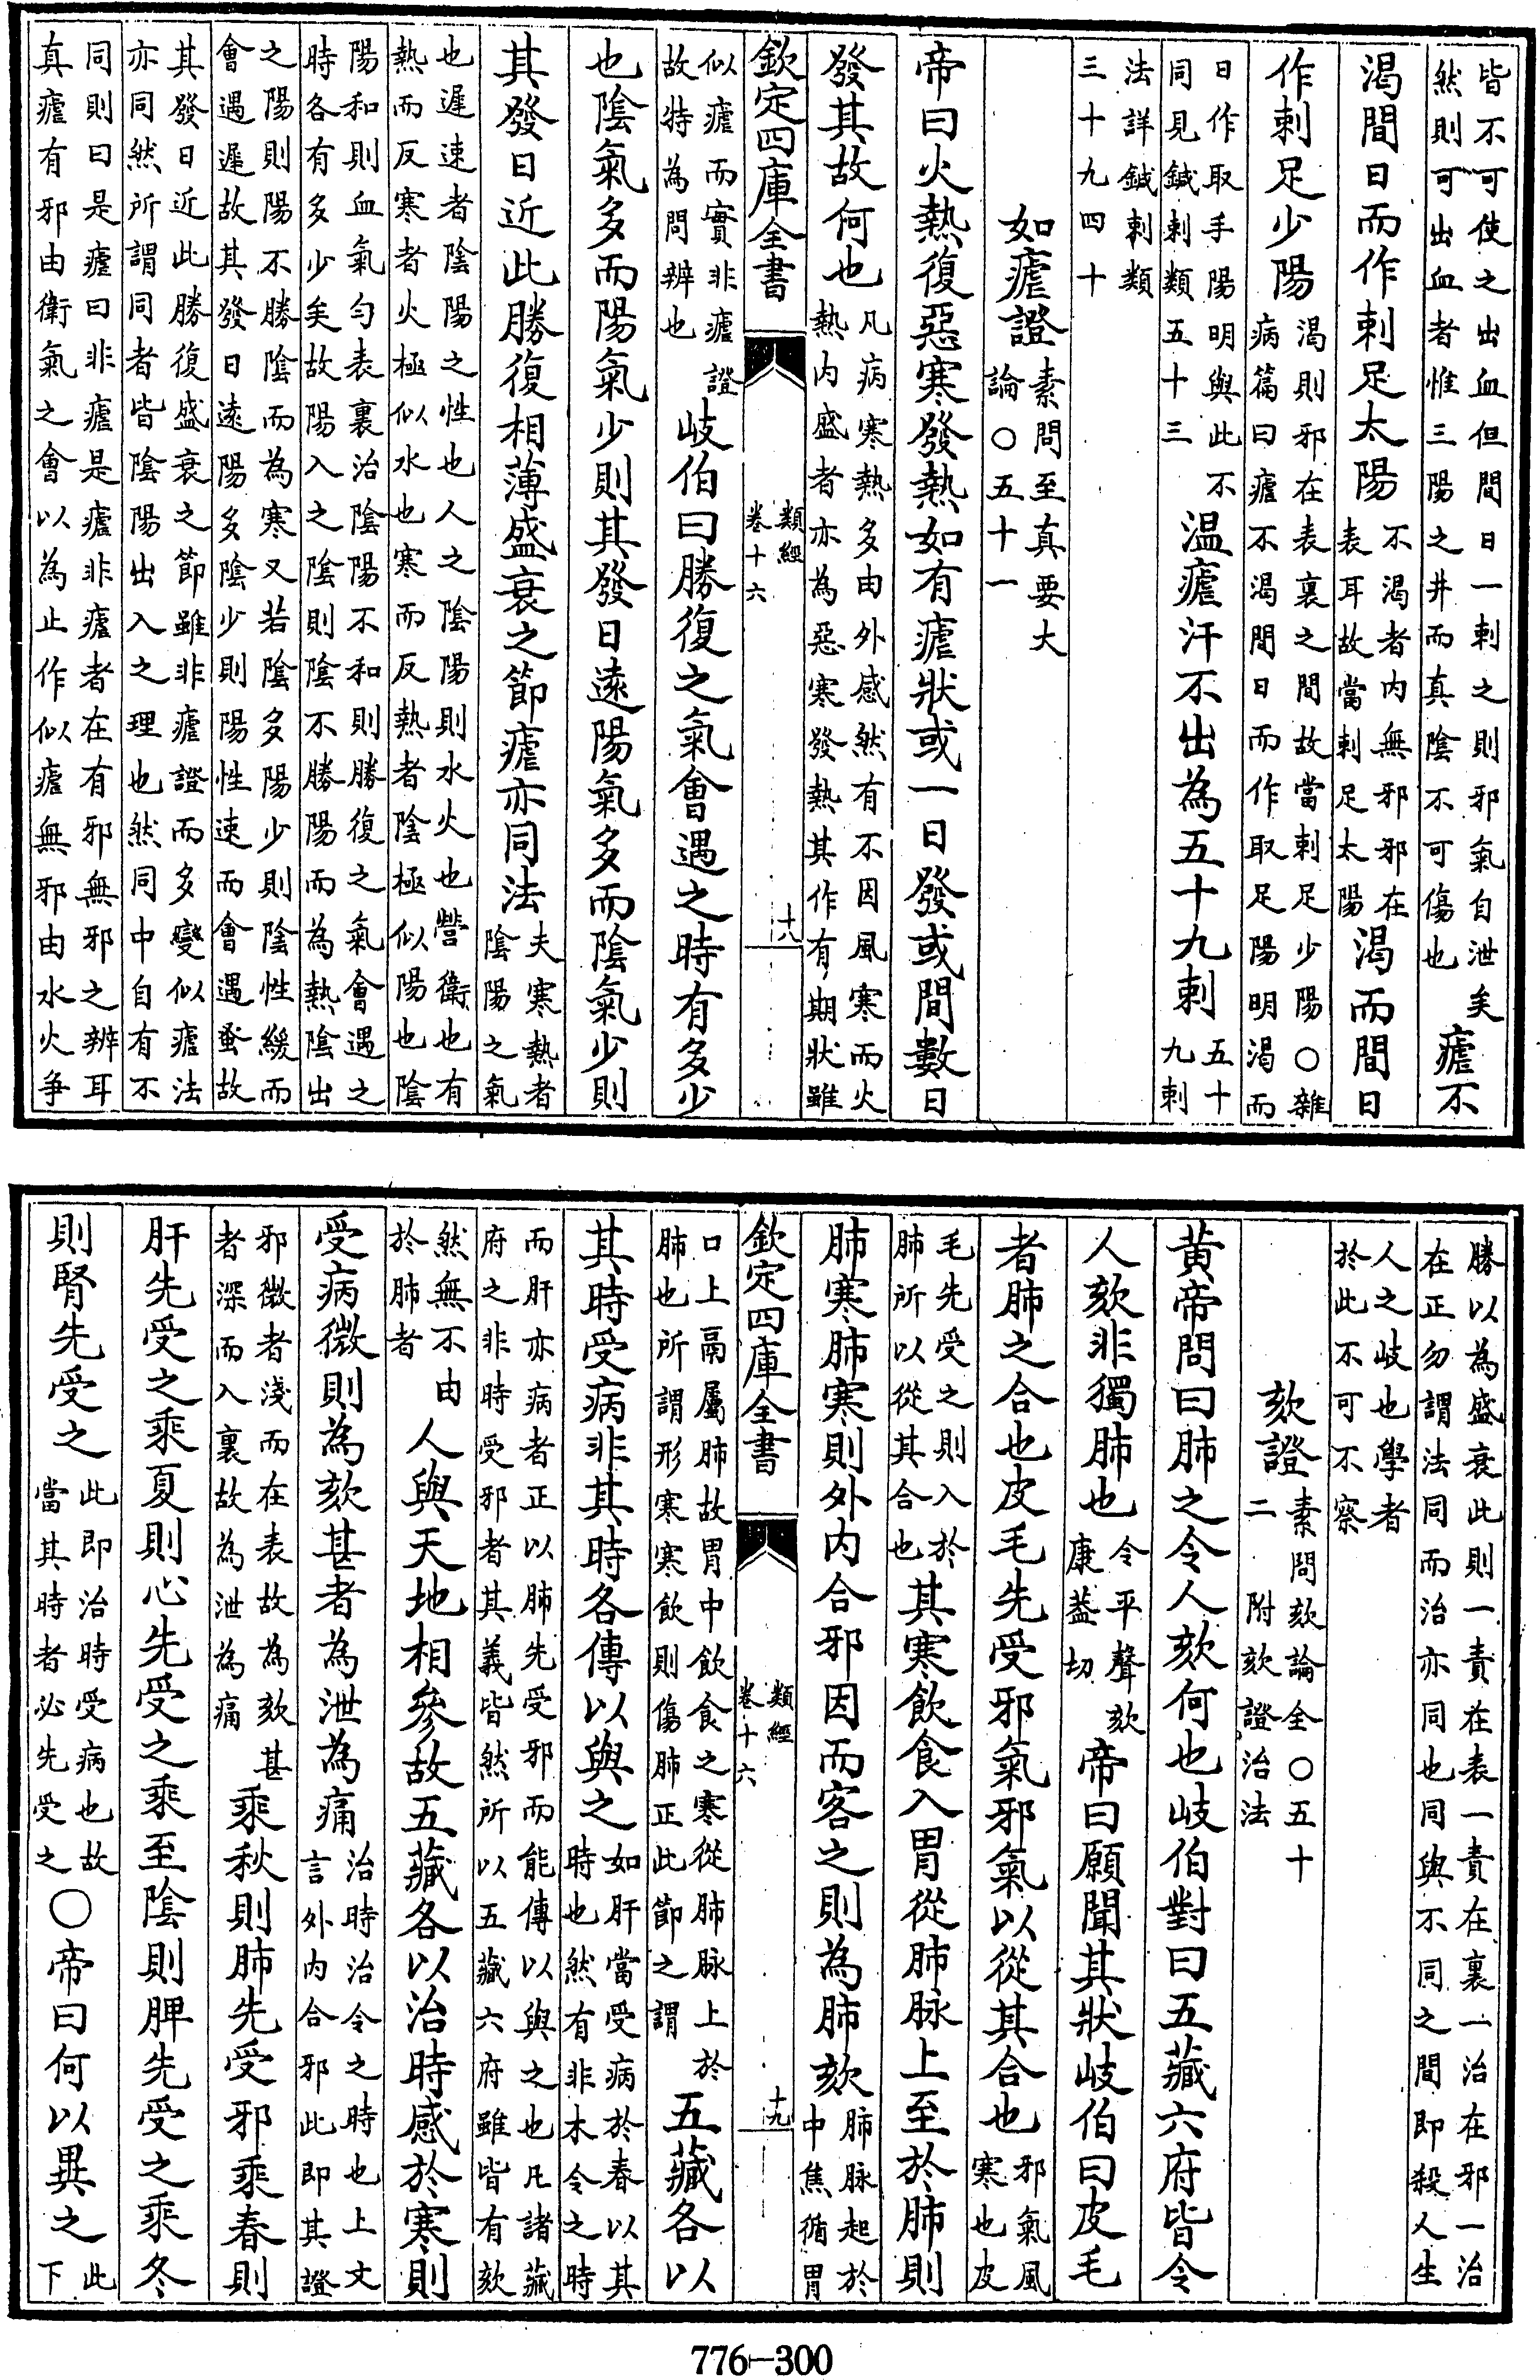 皆不可使之出血但間日一刺之則邪氣自泄矣
然則可出血者惟三陽之井而真陰不可傷也
瘧不
渴間日而作刺足太陽
不渴者內無邪邪在
表耳故當刺足太陽
渴而間日
作刺足少陽
渴則邪在表裏之間故當刺足少陽○雜
病篇曰瘧不渴間日而作取足陽明渴而
日作取手陽明與此不
同見鍼刺類五十三
温瘧汗不出為五十九刺
五十
九刺
法詳鍼刺類
三十九四十
如瘧證
素問至真要大
論○五十一
帝曰火熱復惡寒發熱如有瘧狀或一日發或間數日
發其故何也
凡病寒熱多由外感然有不因風寒而火
熱內盛者亦為惡寒發熱其作有期狀雖
欽定四庫全書
類經
卷十六
十八
似瘧而實非瘧證
故特為問辨也
岐伯曰勝復之氣會遇之時有多少
也陰氣多而陽氣少則其發日遠陽氣多而陰氣少則
其發日近此勝復相薄盛衰之節瘧亦同法
夫寒熱者
陰陽之氣
也遲速者陰陽之性也人之陰陽則水火也營衛也有
熱而反寒者火極似水也寒而反熱者陰極似陽也陰
陽和則血氣勻表裏治陰陽不和則勝復之氣會遇之
時各有多少矣故陽入之陰則陰不勝陽而為熱陰出
之陽則陽不勝陰而為寒又若陰多陽少則陰性緩而
會遇遲故其發日遠陽多陰少則陽性速而會遇蚤故
其發日近此勝復盛衰之節雖非瘧證而多變似瘧法
亦同然所謂同者皆陰陽出入之理也然同中自有不
同則曰是瘧曰非瘧是瘧非瘧者在有邪無邪之辨耳
真瘧有邪由衛氣之會以為止作似瘧無邪由水火爭
勝以為盛衰此則一責在表一責在裏一治在邪一治
在正勿謂法同而治亦同也同與不同之間即殺人生
人之岐也學者
於此不可不察
欬證
素問欬論全○五十
二 附欬證治法
黃帝問曰肺之令人欬何也岐伯對曰五藏六府皆令
人欬非獨肺也
令平聲欬
康葢切
帝曰願聞其狀岐伯曰皮毛
者肺之合也皮毛先受邪氣邪氣以從其合也
邪氣風
寒也皮
毛先受之則入於
肺所以從其合也
其寒飲食入胃從肺脉上至於肺則
肺寒肺寒則外內合邪因而客之則為肺欬
肺脉起於
中焦循胃
欽定四庫全書
類經
卷十六
十九
口上鬲屬肺故胃中飲食之寒從肺脉上於
肺也所謂形寒寒飲則傷肺正此節之謂
五藏各以
其時受病非其時各傳以與之
如肝當受病於春以其
時也然有非木令之時
而肝亦病者正以肺先受邪而能傳以與之也凡諸藏
府之非時受邪者其義皆然所以五藏六府雖皆有欬
然無不由
於肺者
人與天地相參故五藏各以治時感於寒則
受病微則為欬甚者為泄為痛
治時治令之時也上文
言外內合邪此即其證
邪微者淺而在表故為欬甚
者深而入裏故為泄為痛
乘秋則肺先受邪乘春則
肝先受之乘夏則心先受之乘至陰則脾先受之乘冬
則腎先受之
此即治時受病也故
當其時者必先受之
○帝曰何以異之
此
下
776-300